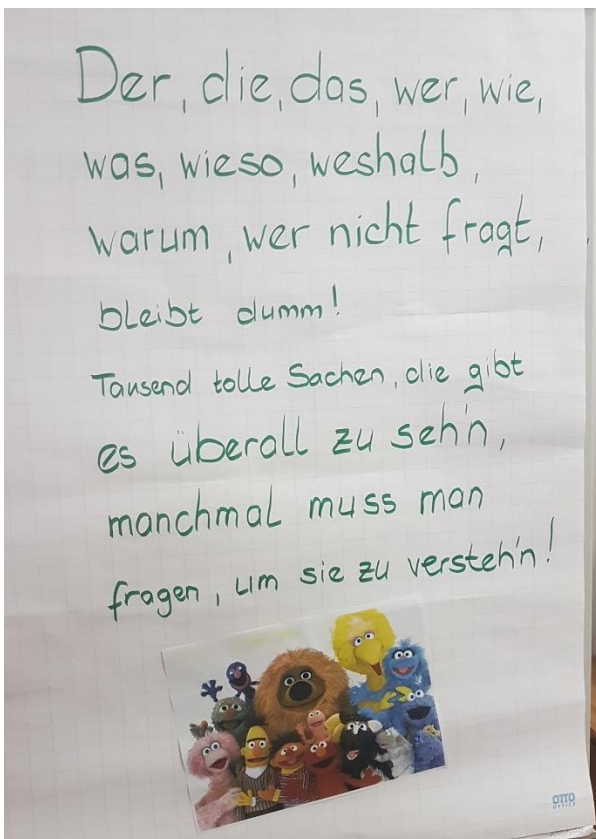 Der, die, das, wer, wie,
was, wieso, weshalb,
warum, wer nicht fragt,
bleibt dumm!
Tausend tolle Sachen, die gibt
es überall zu seh'n,
manchmal muss man
fragen, um sie zu versteh'n!
OTTO
OFFICE